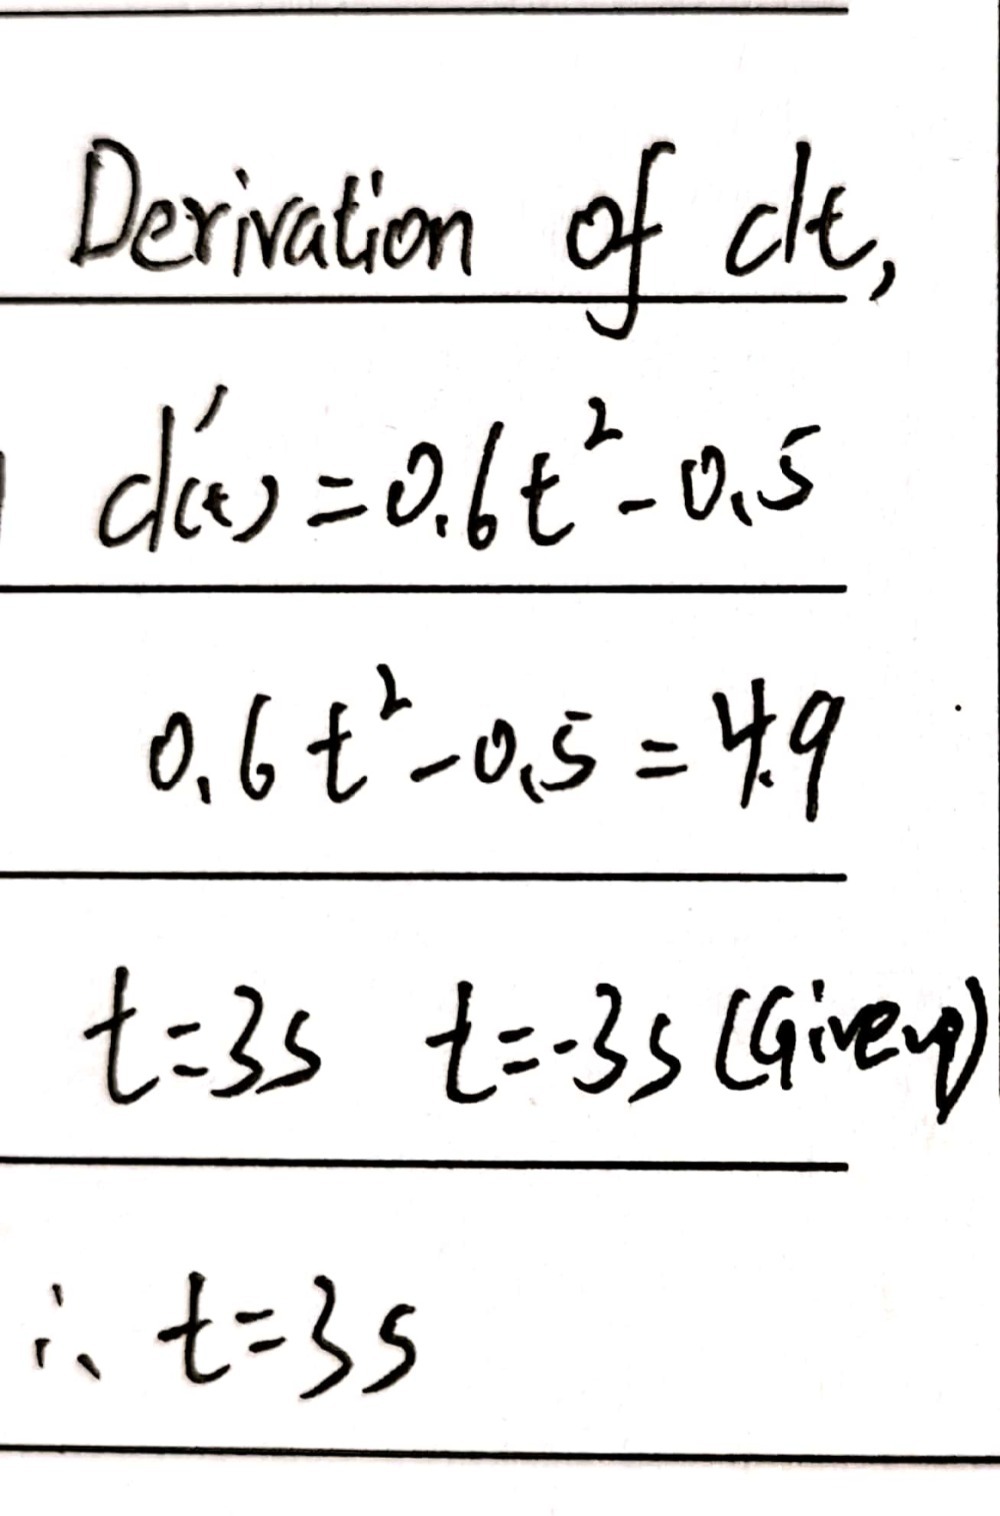 Derivation of dt,
d'(t) = 0.6t² - 0.5
0.6t² - 0.5 = 4.9
t = 3s t = -3s (Give up)
∴ t = 3s